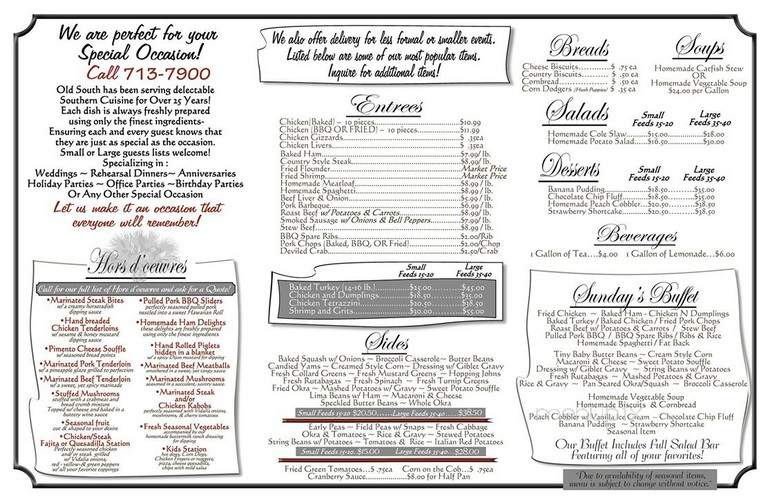 We are perfect for your
Special Occasion!
Call 713-7900
Old South has been serving delectable
Southern Cuisine for Over 25 Years!
Each dish is always freshly prepared
using only the finest ingredients-
Ensuring each and every guest knows that
they are just as special as the occasion.
Small or Large guests lists welcome!
Specializing in :
Weddings ~ Rehearsal Dinners~ Anniversaries
Holiday Parties ~ Office Parties ~Birthday Parties
Or Any Other Special Occasion
Let us make it an occasion that
everyone will remember!
Hors d'oeuvres
Call for our full list of Hors d'oeuvres and ask for a Quote!
•Marinated Steak Bites
w/ a creamy horseradish
dipping sauce
•Hand breaded
Chicken Tenderloins
w/ sesame & honey mustard
dipping sauce
•Pimento Cheese Souffle
w/ seasoned bread points
•Marinated Pork Tenderloin
w/ a pineapple glaze grilled to perfection
•Marinated Beef Tenderloin
w/ a sweet, yet spicy marinade
•Stuffed Mushrooms
stuffed w/ a crabmeat and
bread crumb mixture
Topped w/ cheese and baked in a
buttery wine sauce
•Seasonal fruit
cut & shaped to your desire
•Chicken/Steak
Fajita or Quesadilla Station
Perfectly seasoned chicken
and or steak, grilled
w/ Vidalia onions,
red-yellow & green peppers
w/ all your favorite toppings
•Pulled Pork BBQ Sliders
perfectly seasoned pulled pork
nestled into a sweet Hawaiian Roll
•Homemade Ham Delights
these delights are freshly prepared
using only the finest ingredients
•Hand Rolled Piglets
hidden in a blanket
w/ a spicy Dijon mustard for dipping
•Marinated Beef Meatballs
simmered in a sweet, yet tangy sauce
•Marinated Mushrooms
seasoned in a succulent, savory sauce
•Marinated
Steak and/or
Chicken Kabobs
perfectly seasoned with Vidalia onions,
mushrooms, & cherry tomatoes
•Fresh Seasonal Vegetables
accompanied with
homemade buttermilk ranch dressing
for dipping
•Kids Station
hot dogs, Corn Dogs,
Chicken Fingers or nuggets,
pizza, cheese quesadillas,
chips with mild salsa
We also offer delivery for less formal or smaller events.
Listed below are some of our most popular items.
Inquire for additional items!
Entrees
Chicken(Baked) ~ 10 pieces......$10.99
Chicken (BBQ OR FRIED) ~ 10 pieces......$11.99
Chicken Gizzards......$ .35ea
Chicken Livers......$ .75ea
Baked Ham......$7.99/ lb.
Country Style Steak......$8.99/ lb.
Fried Flounder......Market Price
Fried Shrimp......Market Price
Homemade Meatloaf......$8.99/ lb.
Homemade Spaghetti......$8.99/ lb.
Beef Liver & Onion......$5.99/ lb.
Pork Barbeque......$6.99/ lb.
Roast Beef w/Potatoes & Carrots......$8.99/ lb.
Smoked Sausage w/Onions & Bell Peppers......$7.99/ lb.
Stew Beef......$8.99/ lb.
BBQ Spare Ribs......$2.00/Rib
Pork Chops (Baked, BBQ, OR Fried)......$2.00/Chop
Deviled Crab......$2.50/Crab
Small
Feeds 15-20
Large
Feeds 35-40
Baked Turkey (14-16 lb.)......$25.00......$45.00
Chicken and Dumplings......$18.50......$35.00
Chicken Tetrazzini......$28.50......$38.50
Shrimp and Grits......$30.00......$55.00
Sides
Baked Squash w/Onions ~ Broccoli Casserole~ Butter Beans
Candied Yams ~ Creamed Style Corn ~ Dressing w/ Giblet Gravy
Fresh Collard Greens ~ Fresh Mustard Greens ~ Hopping Johns
Fresh Rutabagas ~ Fresh Spinach ~ Fresh Turnip Greens
Fried Okra ~ Mashed Potatoes w/ Gravy ~ Sweet Potato Souffle
Lima Beans w/ Ham ~ Macaroni & Cheese
Speckled Butter Beans ~ Whole Okra
Small Feeds 15-20 $20.50......Large Feeds 35-40......$38.50
Early Peas ~ Field Peas w/ Snaps ~ Fresh Cabbage
Okra & Tomatoes ~ Rice & Gravy ~ Stewed Potatoes
String Beans w/ Potatoes ~ Tomatoes & Rice ~ Italian Red Potatoes
Small Feeds 15-20. $15.00......Large Feeds 35-40......$28.00
Fried Green Tomatoes...$ .75ea Corn on the Cob...$ .75ea
Cranberry Sauce......$8.00 for Half Pan
Breads
Cheese Biscuits......$ .75 ea
Country Biscuits......$ .50 ea
Cornbread......$ .50 ea
Corn Dodgers (Hush Puppies)/ $ .35 ea
Soups
Homemade Catfish Stew
OR
Homemade Vegetable Soup
$24.00 per Gallon
Salads
Small
Feeds 15-20
Large
Feeds 35-40
Homemade Cole Slaw......$15.00......$28.00
Homemade Potato Salad......$16.50......$30.00
Desserts
Small
Feeds 15-20
Large
Feeds 35-40
Banana Pudding......$18.50......$35.00
Chocolate Chip Fluff......$18.50......$35.00
Homemade Peach Cobbler..$20.50......$38.50
Strawberry Shortcake......$20.50......$38.50
Beverages
1 Gallon of Tea....$4.00 1 Gallon of Lemonade...$6.00
Sunday's Buffet
Fried Chicken ~ Baked Ham - Chicken N Dumplings
Baked Turkey / Baked Chicken / Fried Pork Chops
Roast Beef w/ Potatoes & Carrots / Stew Beef
Pulled Pork BBQ / BBQ Spare Ribs / Ribs & Rice
Homemade Spaghetti / Fat Back
Tiny Baby Butter Beans ~ Cream Style Corn
Macaroni & Cheese ~ Sweet Potato Souffle
Dressing w/ Giblet Gravy ~ String Beans w/ Potatoes
Fresh Rutabagas ~ Mixed Greens
Rice & Gravy ~ Pan Seared Okra/Squash ~ Broccoli Casserole
Homemade Vegetable Soup
Homemade Biscuits & Cornbread
Peach Cobbler w/ Vanilla Ice Cream ~ Chocolate Chip Fluff
Banana Pudding ~ Strawberry Shortcake
Seasonal Item
Our Buffet Includes Full Salad Bar
Featuring all of your favorites!
"Due to availability of seasonal items,
menu is subject to change without notice."